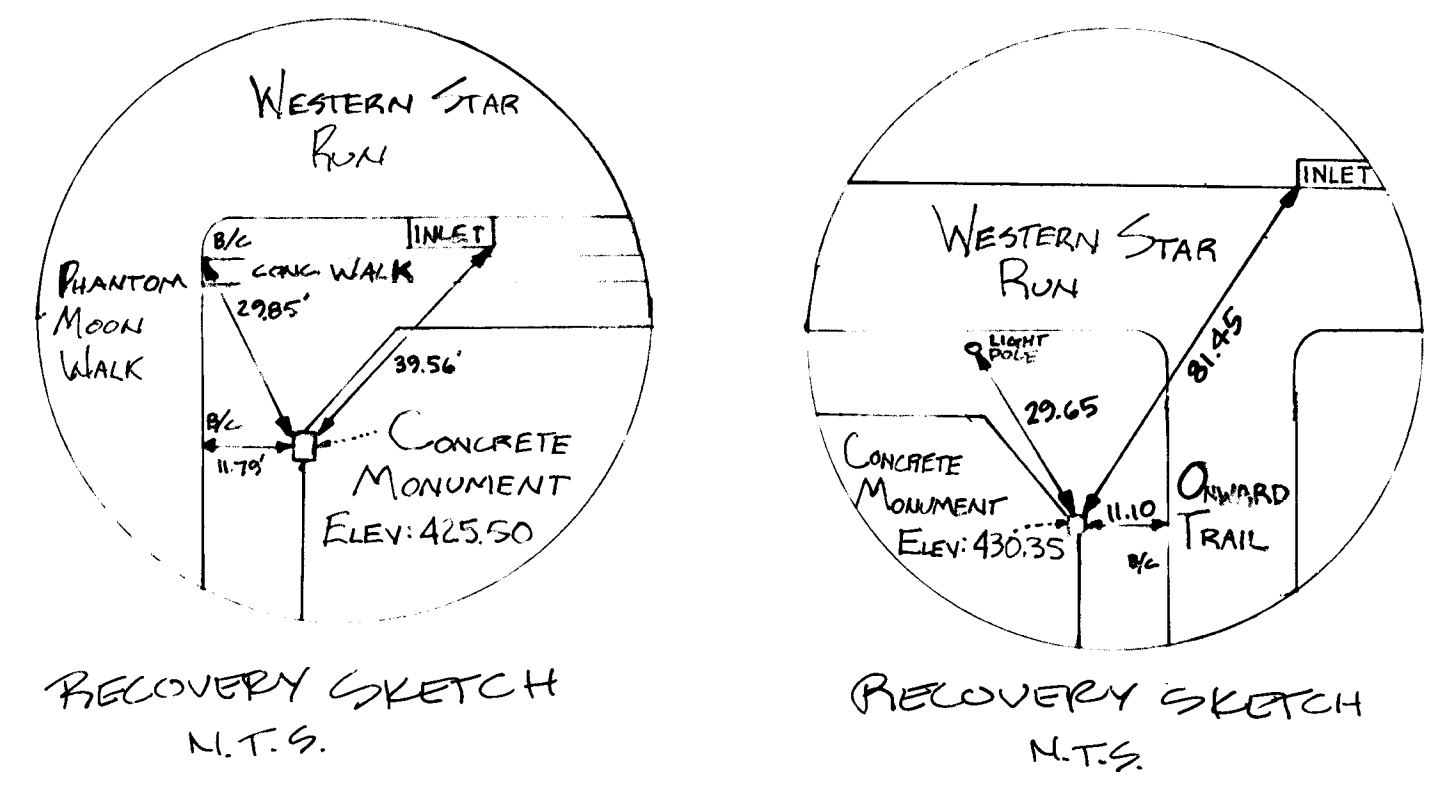 WESTERN STAR
RUN
B/C
INLET
CONC. WALK
PHANTOM
MOON
WALK
29.85'
39.56'
B/C
11.79'
CONCRETE
MONUMENT
ELEV: 425.50
RECOVERY SKETCH
N.T.S.
INLET
WESTERN STAR
RUN
LIGHT
POLE
81.45
29.65
CONCRETE
MONUMENT
ELEV: 430.35
11.10
B/C
ONWARD
TRAIL
RECOVERY SKETCH
N.T.S.